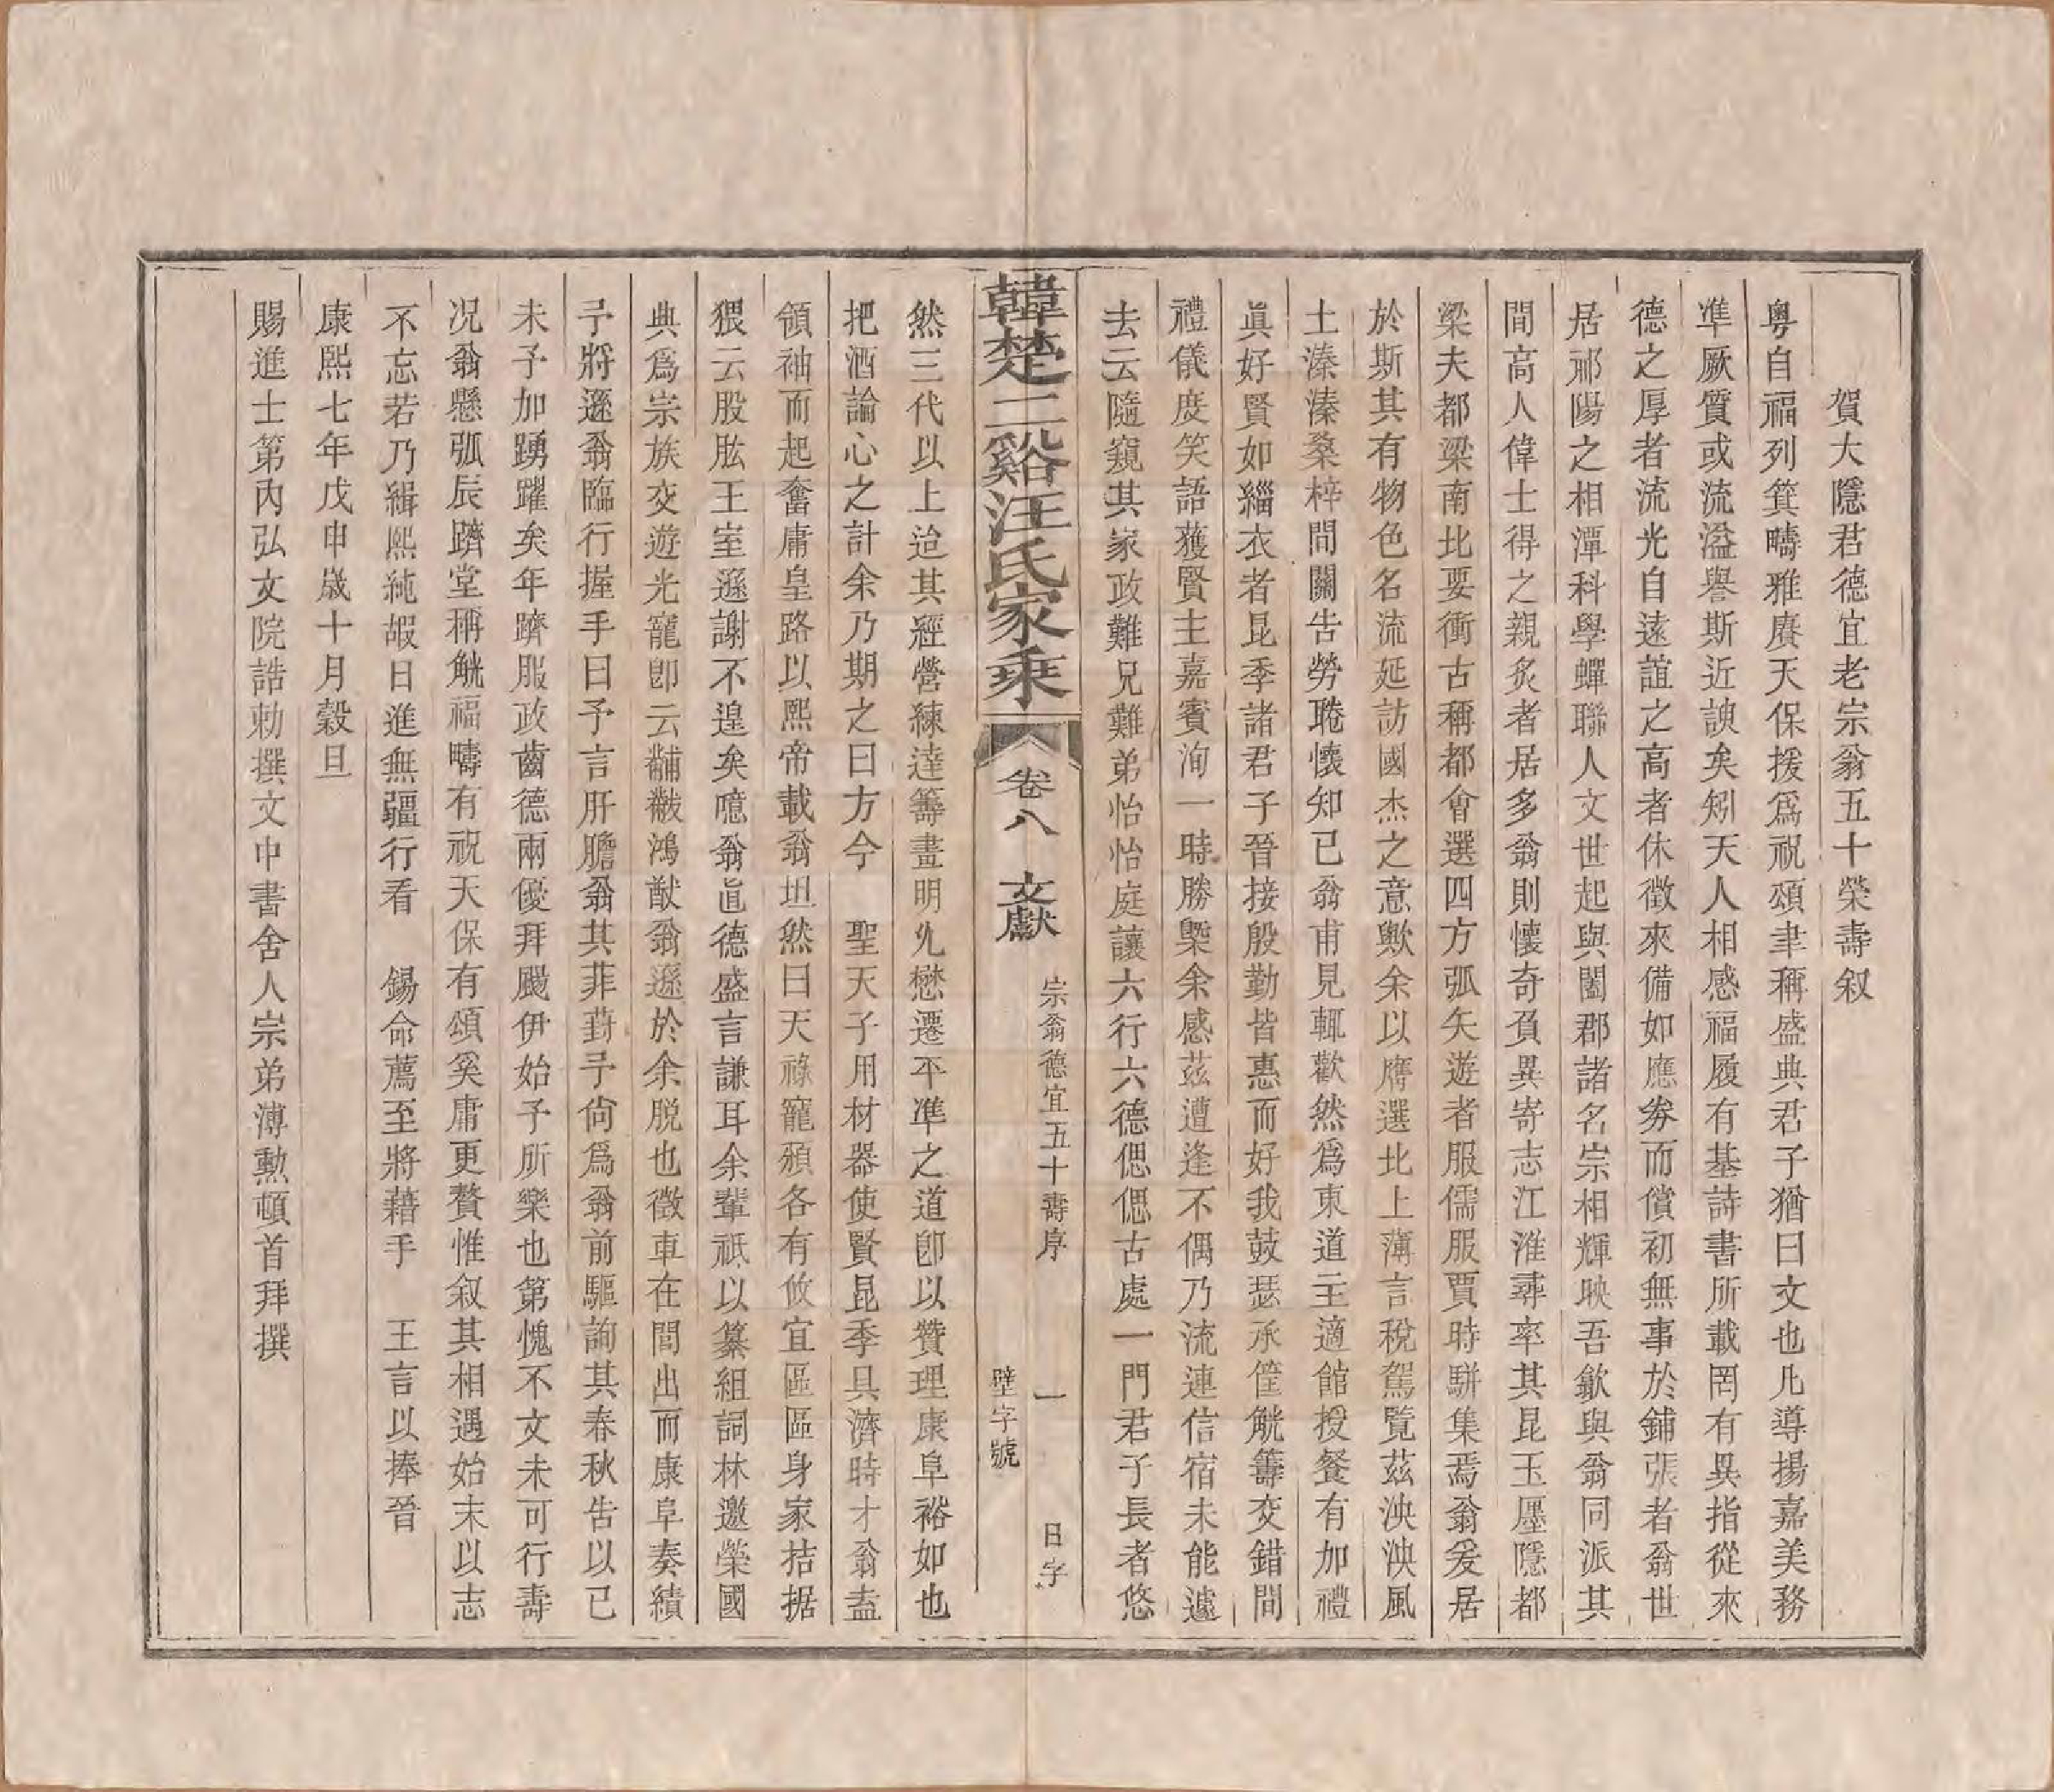 賀大隱君德宜老宗翁五十榮壽叙
粵自福列箕疇雅賡天保援爲祝頌聿稱盛典君子猶曰文也凡導揚嘉美務
準厥質或流溢譽斯近諛矣矧天人相感福履有基詩書所載罔有異指從來
德之厚者流光自遠誼之高者休徵來備如應券而償初無事於鋪張者翁世
居邢陽之相潭科學蟬聯人文世起與闔郡諸名宗相輝映吾歙與翁同派其
間高人偉士得之親炙者居多翁則懷奇負異寄志江淮尋率其昆玉廛隱都
梁夫都梁南北要衝古稱都會選四方弧矢遊者服儒服賈時駢集焉翁爰居
於斯其有物色名流延訪國杰之意歟余以膺選北上薄言稅駕覽茲泱泱風
土溱溱桑梓間關告勞睠懷知已翁甫見輒歡然爲東道主適館授餐有加禮
眞好賢如緇衣者昆季諸君子晉接殷勤皆惠而好我鼓瑟承筐觥籌交錯間
禮儀度笑語獲賢主嘉賓洵一時勝槩余感茲遭逢不偶乃流連信宿未能遽
去云隨窺其家政難兄難弟怡怡庭讓六行六德偲偲古處一門君子長者悠
韓楚二谿汪氏家乘
卷八 文獻
宗翁德宜五十壽序 一 日字
壁字號
然三代以上迨其經營練達籌畫明允懋遷平準之道卽以贊理康阜裕如也
把酒論心之計余乃期之曰方今 聖天子用材器使賢昆季具濟時才翁盍
領袖而起奮庸皇路以熙帝載翁坦然曰天祿寵頒各有攸宜區區身家拮据
猥云股肱王室遜謝不遑矣噫翁眞德盛言謙耳余輩祇以纂組詞林邀榮國
典爲宗族交遊光寵卽云黼黻鴻猷翁遜於余脫也徵車在閭出而康阜奏績
予將遜翁臨行握手曰予言肝膽翁其菲葑予尙爲翁前驅詢其春秋告以已
未予加踴躍矣年躋服政齒德兩優拜颺伊始予所樂也第愧不文未可行壽
况翁懸弧辰躋堂稱觥福疇有祝天保有頌奚庸更贅惟叙其相遇始末以志
不忘若乃緝熙純嘏日進無疆行看 錫命薦至將藉手 王言以捧晉
康熙七年戊申歲十月穀旦
賜進士第內弘文院誥勅撰文中書舍人宗弟溥勲頓首拜撰